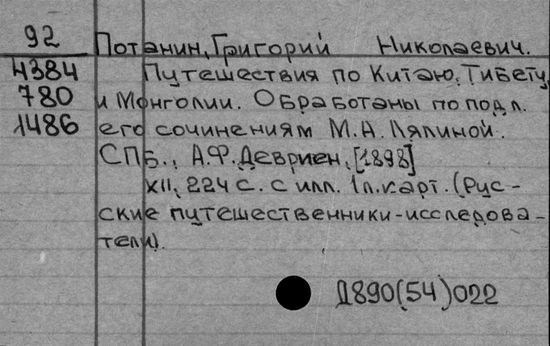 92 Потанин, Григорий Николаевич.
4384 Путешествия по Китаю, Тибету
780 и Монголии. Обработаны по подл.
1486 его сочинениям М.А. Лялиной.
СПб., А.Ф. Девриен, [1898]
XII, 224 с. с илл. 1 л. карт. (Рус-
ские путешественники-исследова-
тели).
Д890(54)022